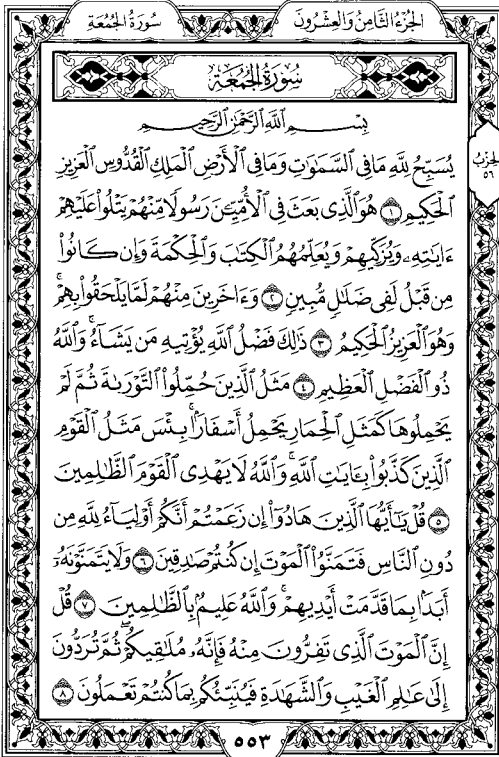 الجزء الثامن والعشرون
سورة الجمعة
سُورَةُ الجُمُعَةِ
بِسْمِ ٱللَّهِ ٱلرَّحْمَٰنِ ٱلرَّحِيمِ
يُسَبِّحُ لِلَّهِ مَا فِى ٱلسَّمَٰوَٰتِ وَمَا فِى ٱلْأَرْضِ ٱلْمَلِكِ ٱلْقُدُّوسِ ٱلْعَزِيزِ
ٱلْحَكِيمِ ١ هُوَ ٱلَّذِى بَعَثَ فِى ٱلْأُمِّيِّـۧنَ رَسُولًا مِّنْهُمْ يَتْلُوا۟ عَلَيْهِمْ
ءَايَٰتِهِۦ وَيُزَكِّيهِمْ وَيُعَلِّمُهُمُ ٱلْكِتَٰبَ وَٱلْحِكْمَةَ وَإِن كَانُوا۟
مِن قَبْلُ لَفِى ضَلَٰلٍ مُّبِينٍ ٢ وَءَاخَرِينَ مِنْهُمْ لَمَّا يَلْحَقُوا۟ بِهِمْ ۚ
وَهُوَ ٱلْعَزِيزُ ٱلْحَكِيمُ ٣ ذَٰلِكَ فَضْلُ ٱللَّهِ يُؤْتِيهِ مَن يَشَآءُ ۚ وَٱللَّهُ
ذُو ٱلْفَضْلِ ٱلْعَظِيمِ ٤ مَثَلُ ٱلَّذِينَ حُمِّلُوا۟ ٱلتَّوْرَىٰةَ ثُمَّ لَمْ
يَحْمِلُوهَا كَمَثَلِ ٱلْحِمَارِ يَحْمِلُ أَسْفَارًۢا ۚ بِئْسَ مَثَلُ ٱلْقَوْمِ
ٱلَّذِينَ كَذَّبُوا۟ بِـَٔايَٰتِ ٱللَّهِ ۚ وَٱللَّهُ لَا يَهْدِى ٱلْقَوْمَ ٱلظَّٰلِمِينَ
٥ قُلْ يَٰٓأَيُّهَا ٱلَّذِينَ هَادُوٓا۟ إِن زَعَمْتُمْ أَنَّكُمْ أَوْلِيَآءُ لِلَّهِ مِن
دُونِ ٱلنَّاسِ فَتَمَنَّوُا۟ ٱلْمَوْتَ إِن كُنتُمْ صَٰدِقِينَ ٦ وَلَا يَتَمَنَّوْنَهُۥٓ
أَبَدًۢا بِمَا قَدَّمَتْ أَيْدِيهِمْ ۚ وَٱللَّهُ عَلِيمٌۢ بِٱلظَّٰلِمِينَ ٧ قُلْ
إِنَّ ٱلْمَوْتَ ٱلَّذِى تَفِرُّونَ مِنْهُ فَإِنَّهُۥ مُلَٰقِيكُمْ ۖ ثُمَّ تُرَدُّونَ
إِلَىٰ عَٰلِمِ ٱلْغَيْبِ وَٱلشَّهَٰدَةِ فَيُنَبِّئُكُم بِمَا كُنتُمْ تَعْمَلُونَ ٨
الحزب
٥٦
٥٥٣